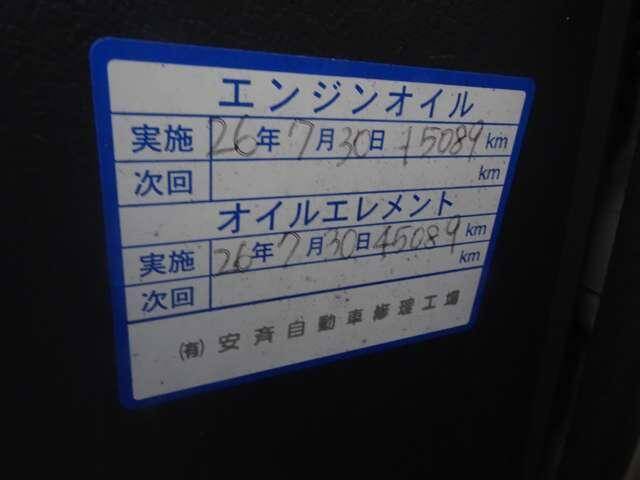 エンジンオイル
実施 26年7月30日 45089km
次回 km
オイルエレメント
実施 26年7月30日 45089km
次回 km
(有)安斉自動車修理工場